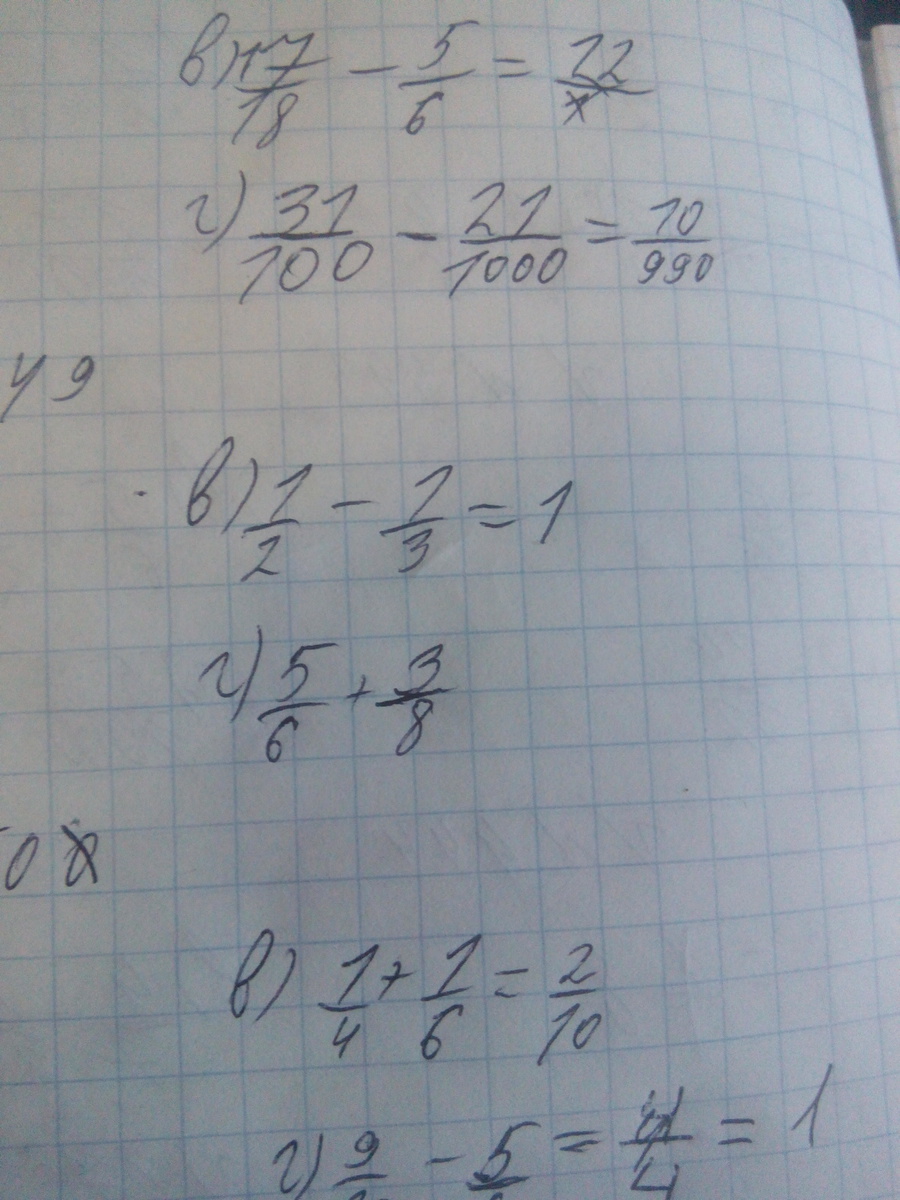 в) 17/18 - 5/6 = 22/
г) 31/100 - 21/1000 = 10/990
49
в) 1/2 - 1/3 = 1
г) 5/6 + 3/8
0
в) 1/4 + 1/6 = 2/10
г) 9/ - 5/ = /4 = 1